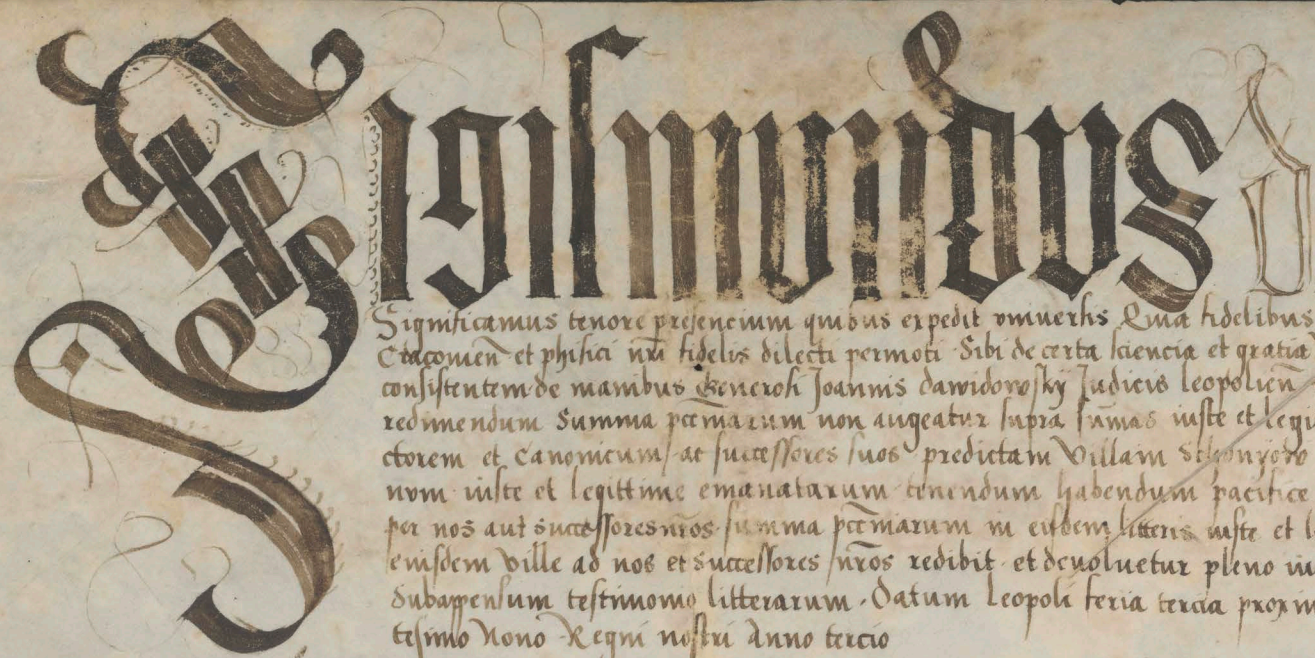 Sigismundus D
Significamus tenore presencium quibus expedit vniuersis Quia fidelibus
et phisici nri fidelis dilecti permoti Sibi de certa sciencia et gratia
consistentem de manibus Generosi Joannis dawidowsky Judicis leopolien
redimendum Summa pccmarum non augeatur supra sumas iuste et legi
ctorem et Canonicum ac successores suos predictam Villam
num iuste et legittime emanatarum tenendum habendum pacifice
per nos aut successores nros summa pccmarum in eisdem litteris iuste et l
eiusdem ville ad nos et successores nros redibit et deuoluetur pleno iu
Subappensum testimonio litterarum. Datum leopoli feria tercia proxim
tesimo Nono Regni nostri Anno tercio